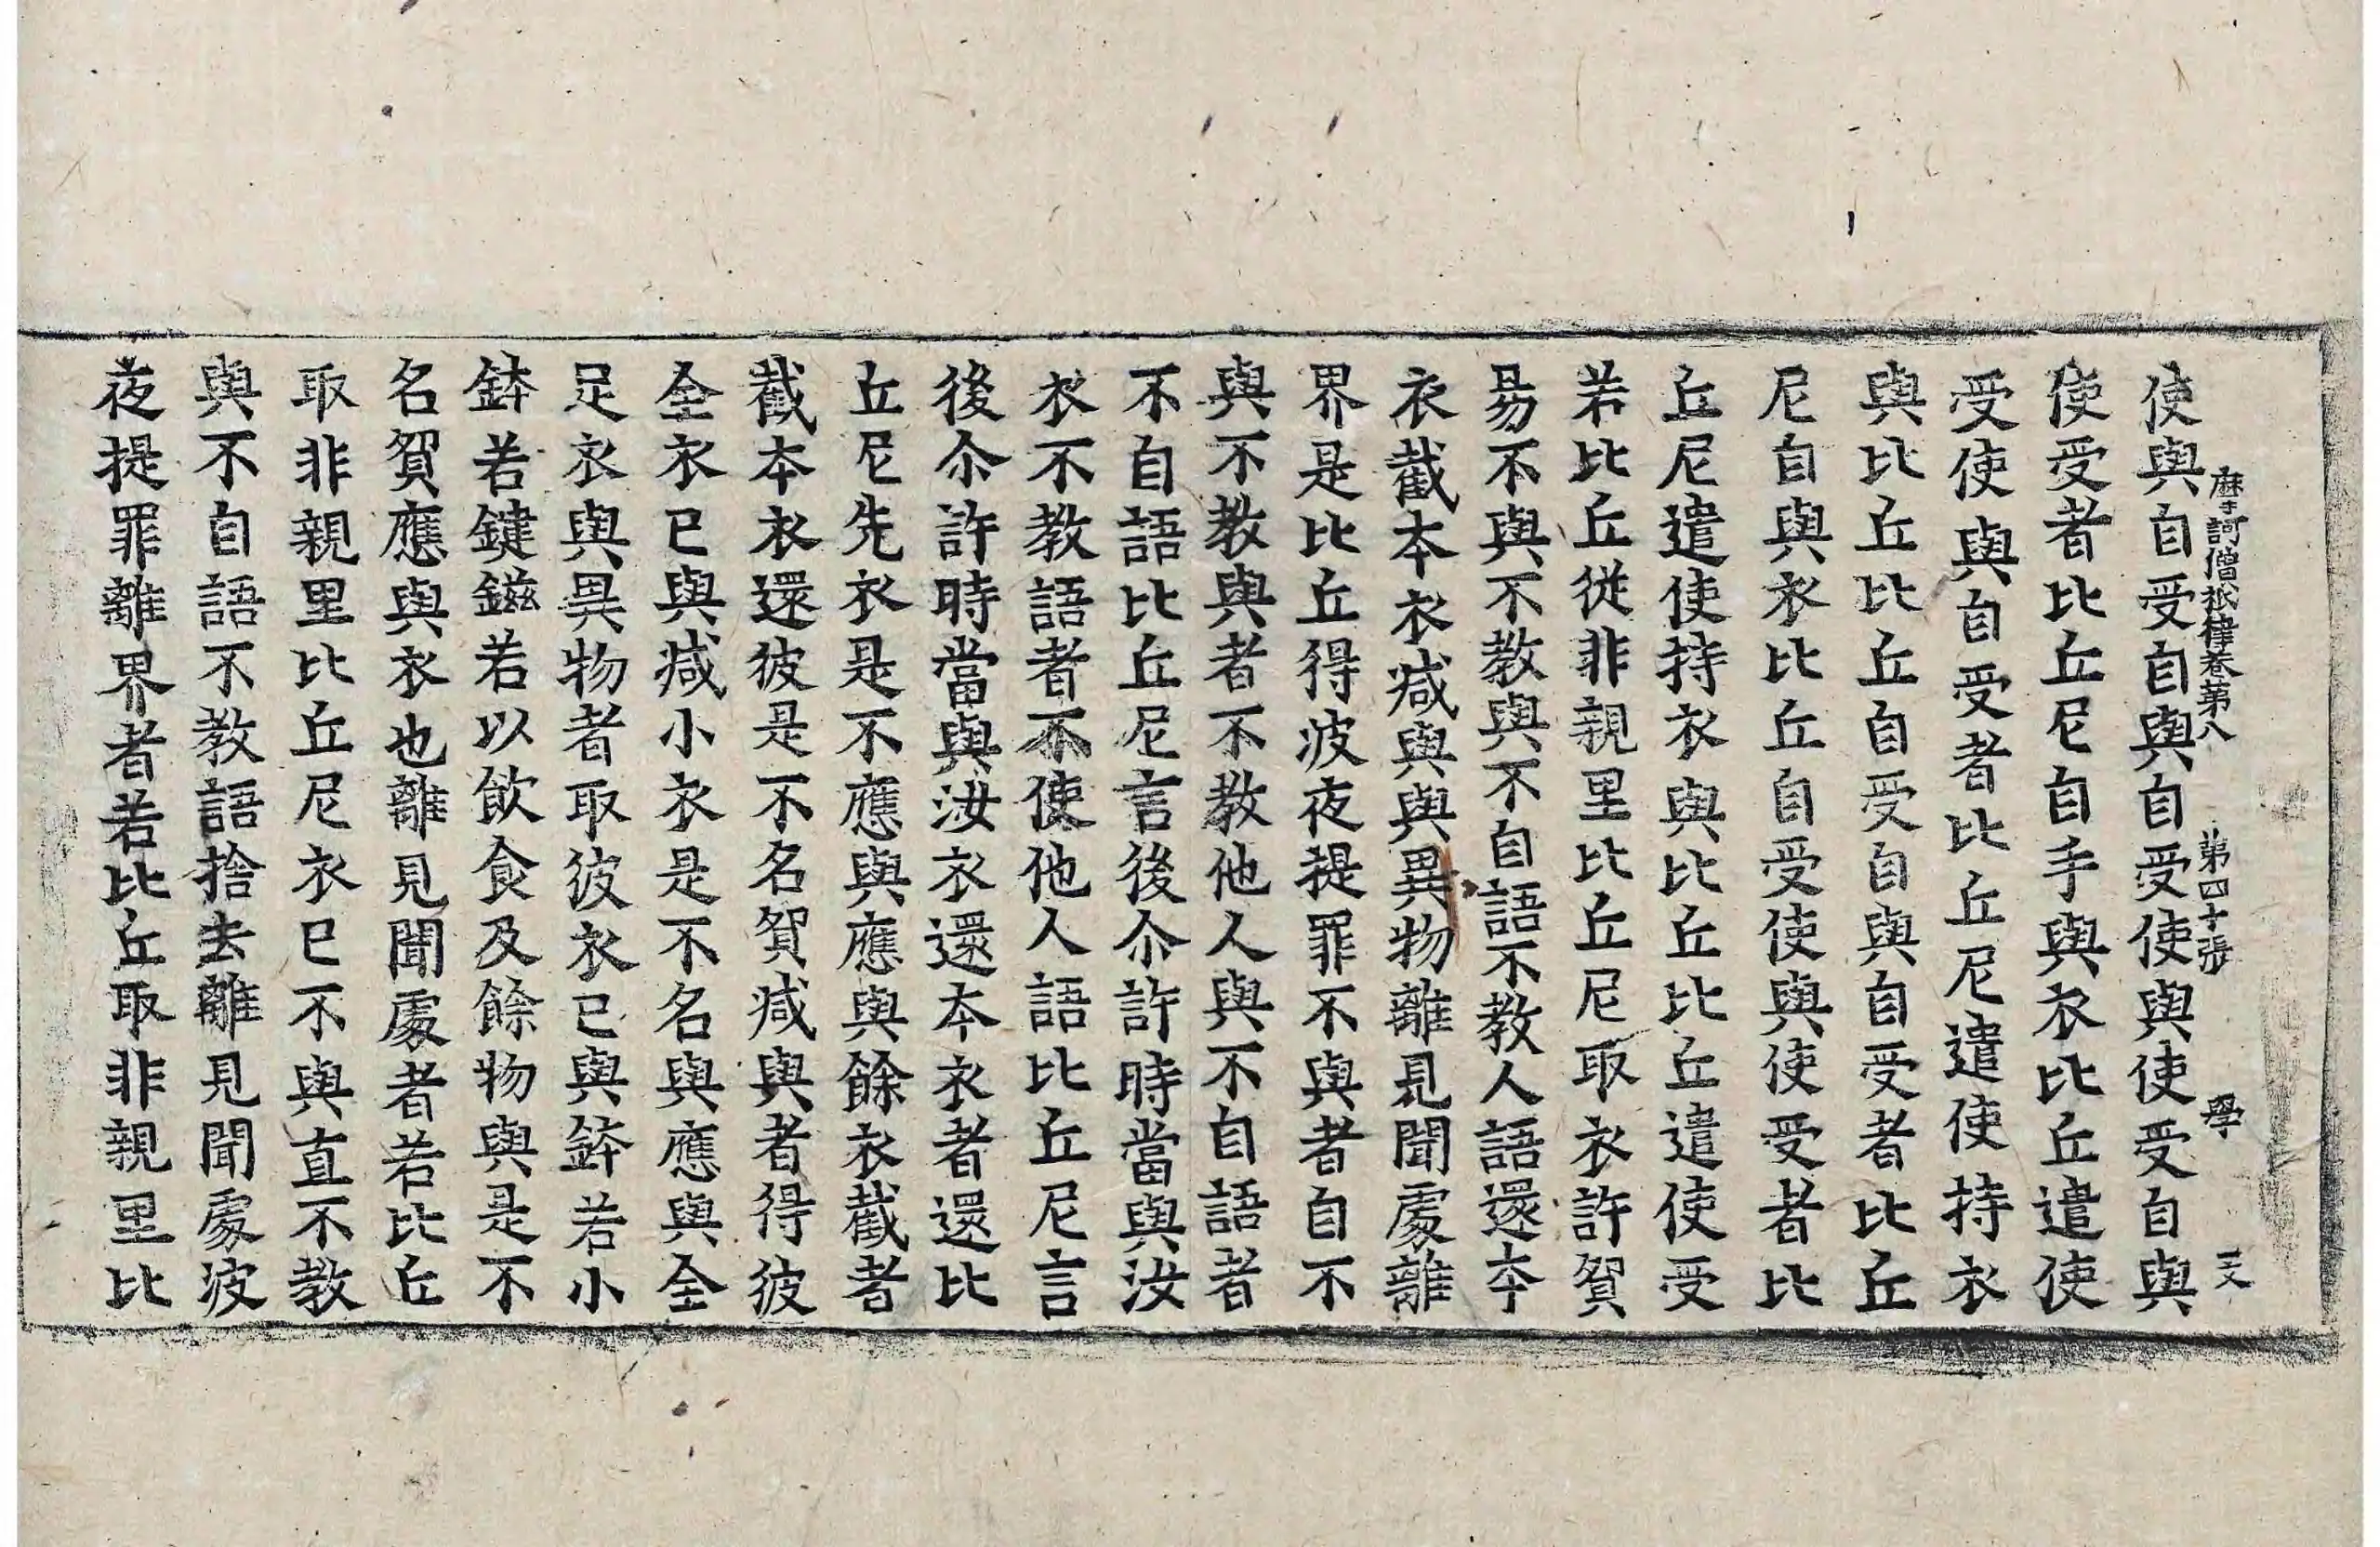 摩訶僧祇律卷第八 第四十張 學 二大
使與自受自與自受使與使受自與
使受者比丘尼自手與衣比丘遣使
受使與自受者比丘尼遣使持衣
與比丘比丘自受自與自受者比丘
尼自與衣比丘自受使與使受者比
丘尼遣使持衣與比丘比丘遣使受
若比丘從非親里比丘尼取衣許貿
易不與不教與不自語不教人語還夲
衣截夲衣減與與異物離見聞處離
界是比丘得波夜提罪不與者自不
與不教與者不教他人與不自語者
不自語比丘尼言後尒許時當與汝
衣不教語者不使他人語比丘尼言
後尒許時當與汝衣還夲衣者還比
丘尼先衣是不應與應與餘衣截者
截夲衣還彼是不名貿減與者得彼
全衣已與減小衣是不名與應與全
足衣與異物者取彼衣已與鉢若小
鉢若鍵鎡若以飲食及餘物與是不
名貿應與衣也離見聞處者若比丘
取非親里比丘尼衣已不與直不教
與不自語不教語捨去離見聞處波
夜提罪離界者若比丘取非親里比